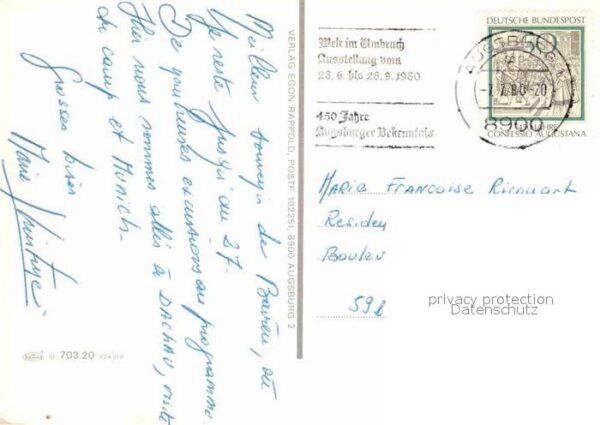 Meilleur souvenir de Bavière, où
je reste jusqu'au 27.
De nombreuses excursions au programme
Hier nous sommes allés à DACHAU, visite
du camp et Munich.
Grosses bises
Marie
VERLAG EGON RAPPOLD, POSTF. 102251, 8900 AUGSBURG 2
51 703.20
Welt im Umbruch
Ausstellung vom
28. 6. bis 28. 9. 1980
450 Jahre
Augsburger Bekenntnis
DEUTSCHE BUNDESPOST
AUGSBURG 1
-2.7.80-20
8900
CONFESSIO AUGUSTANA
MARIE FRANCOISE
Residen
Boulev
59
privacy protection
Datenschutz